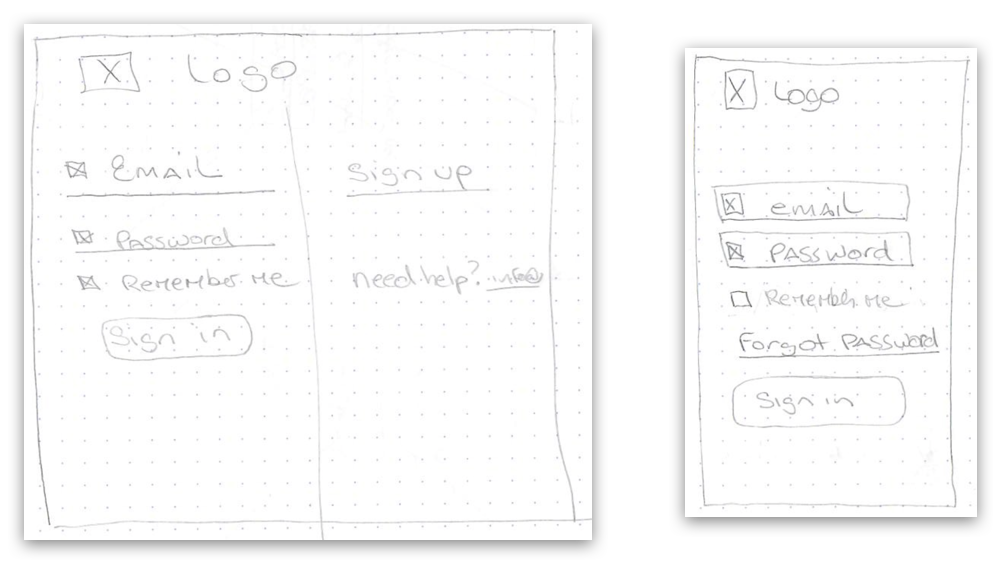 Logo
EMAIL
Password
Remember Me
Sign in
Sign up
need help? info@
Logo
eMAIL
PASSword
Remember Me
Forgot PASSword
Sign in